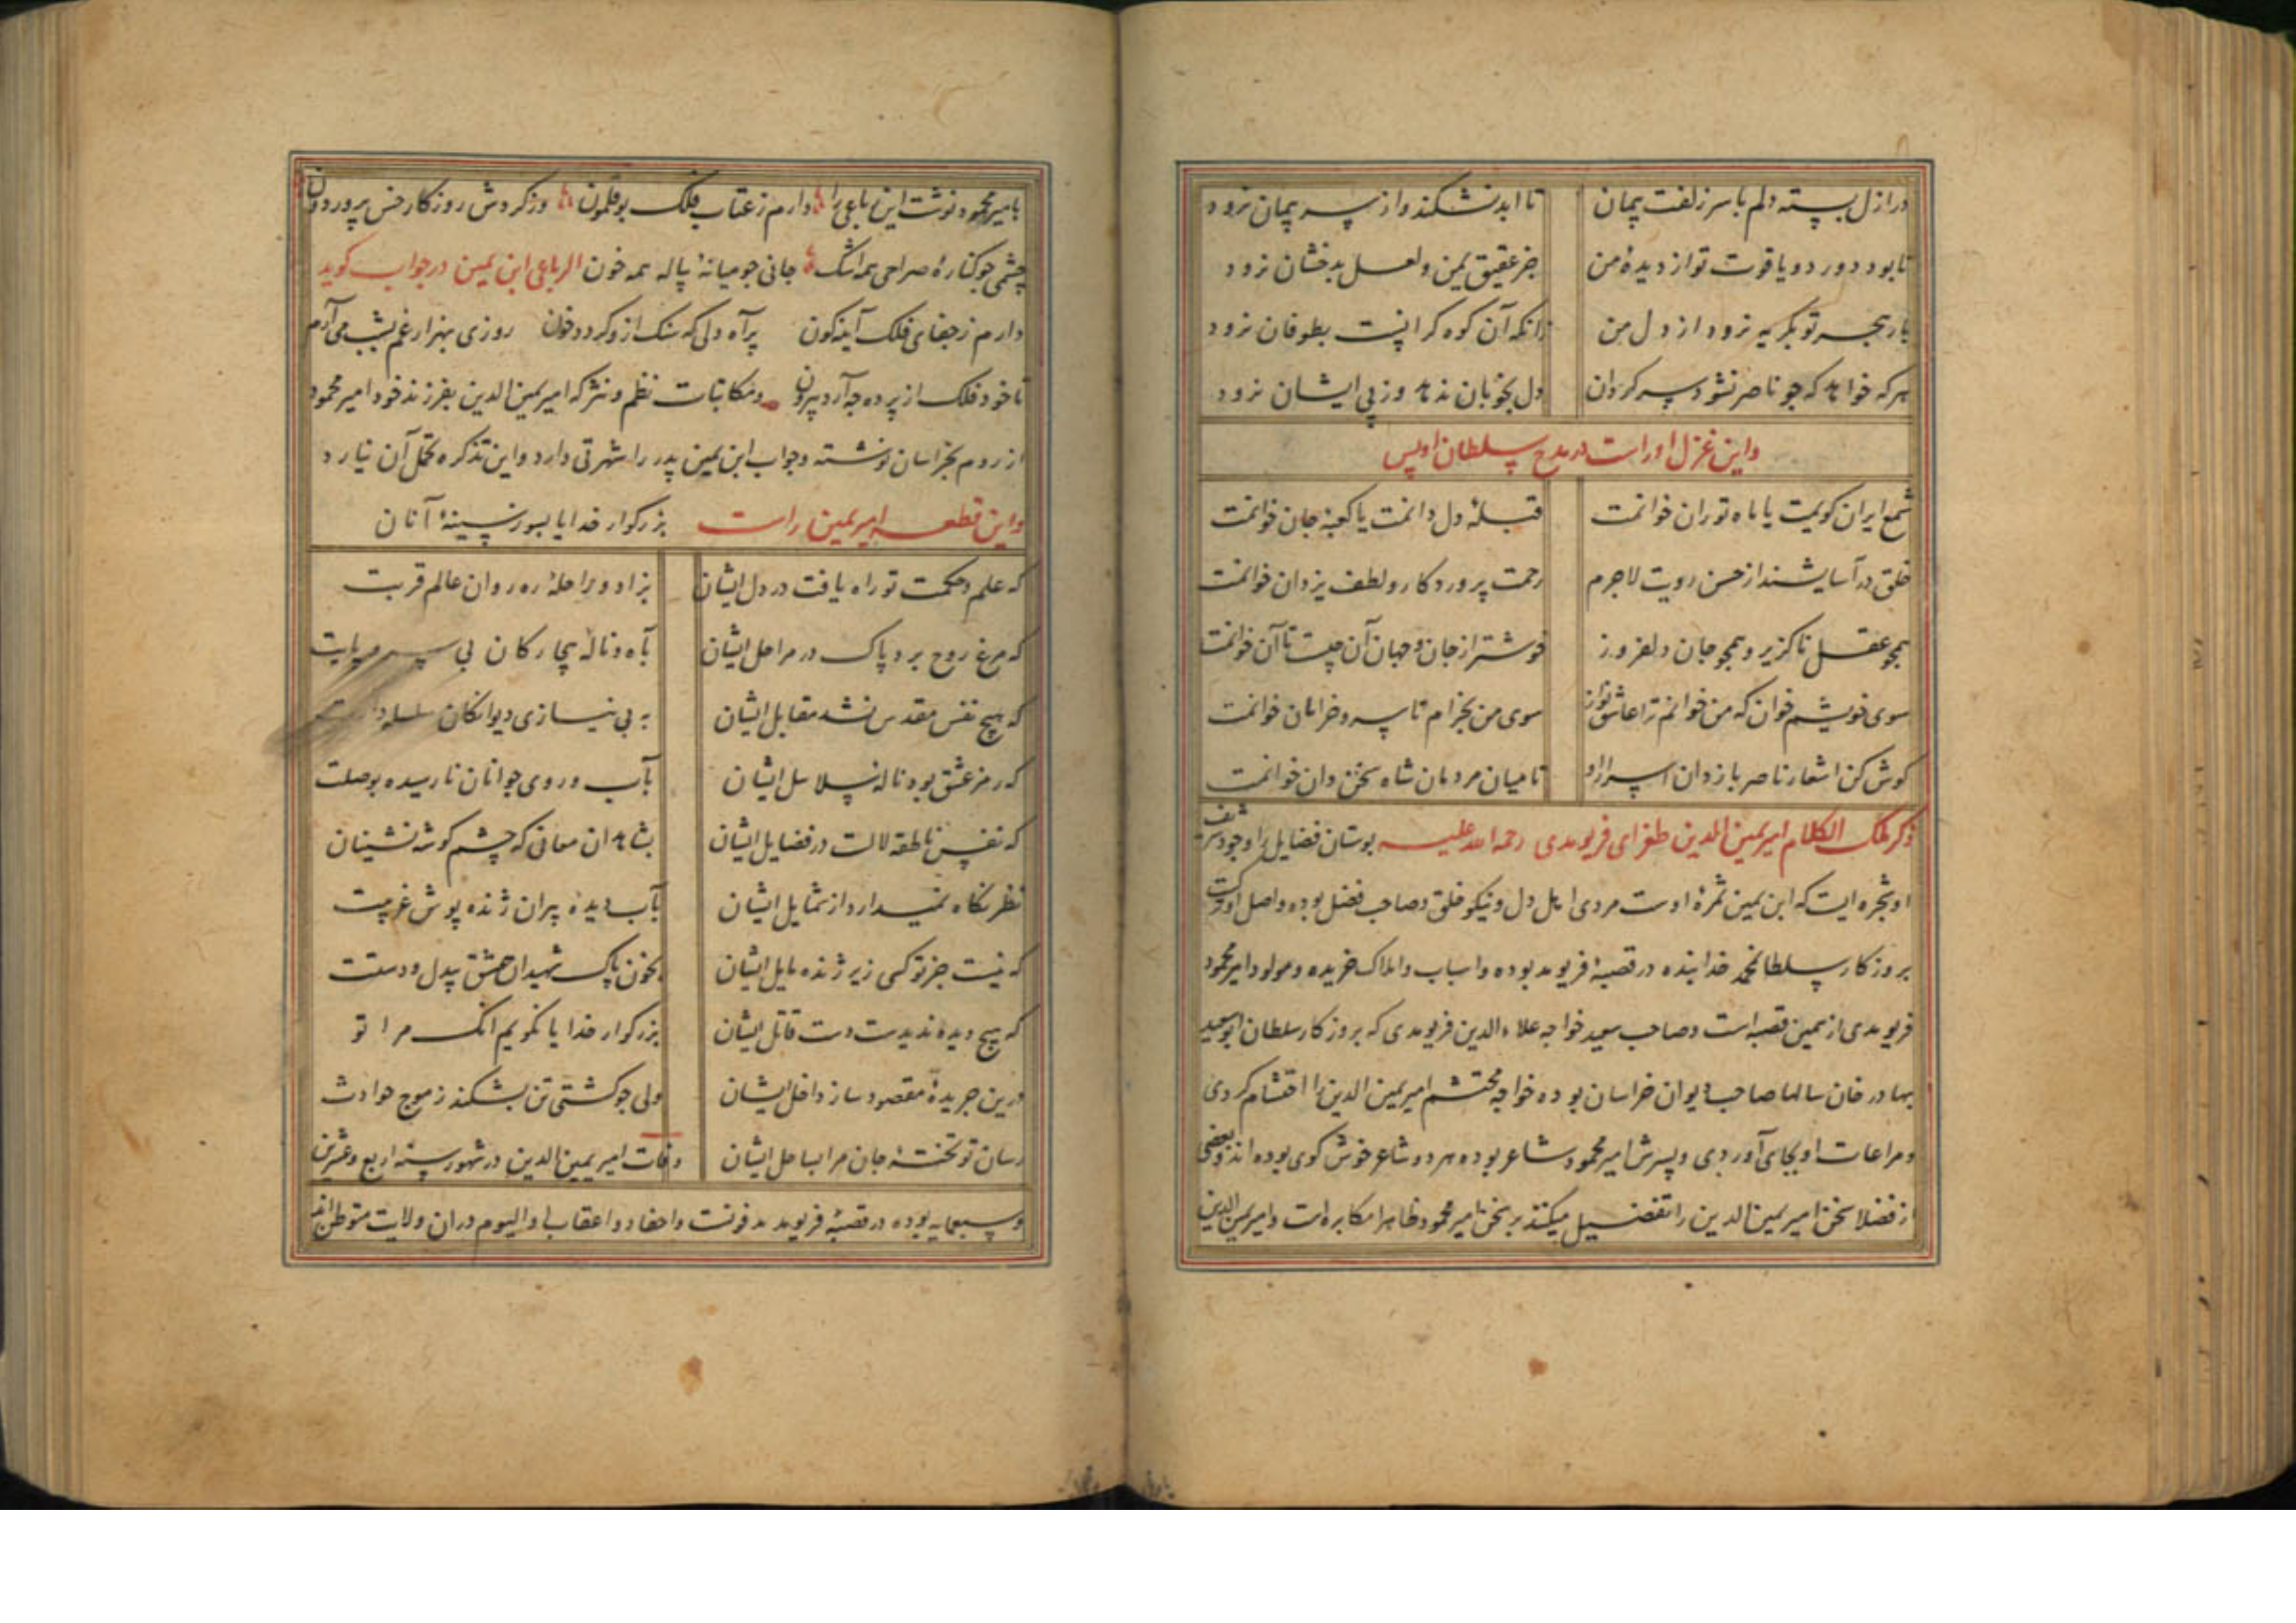 در ازل بسته دلم با سر زلفت پیمان تا ابد نشکند و از سر پیمان نرود
تا بود دور دو یاقوت تو از دیدهٔ من جز عقیق یمن و لعل بدخشان نرود
بار هجر تو بکریه نرود از دل من زانکه آن کوه کرانیست بطوفان نرود
هرکه خواهد که جو ناصر نشود سرکردان دل بخوبان ندهد وز پی ایشان نرود
واین غزل اوراست در مدح سلطان اویس
شمع ایران کویمت یا ماه توران خوانمت قبلهٔ دل دانمت یا کعبهٔ جان خوانمت
خلق در آسایشند از حسن رویت لاجرم رحمت پروردکار و لطف یزدان خوانمت
همجو عقل ناکزیر و همجو جان دلفروز خوشتر از جان و جهان آن چیست تا آن خوانمت
سوی خویشم خوان که من خوانم ترا عاشق نواز سوی من بخرام تا سرو خرامان خوانمت
کوش کن اشعار ناصر بازدان اسرار او تا میان مردمان شاه سخن دان خوانمت
ذکر ملک الکلام امیر یمین الدین طغرای فریومدی رحمة الله علیه بوستان فضایل را وجود شریف
او شجره ایست که ابن یمین ثمرهٔ اوست مردی اهل دل و نیکو خلق و صاحب فضل بوده و اصل او ترکست
بروزکار سلطان محمد خدابنده در قصبهٔ فریومد بوده و اسباب و املاک خریده و مولود امیر محمود
فریومدی از همین قصبه است و صاحب سعید خواجه علاء الدین فریومدی که بروزکار سلطان ابوسعید
بهادر خان سالها صاحب دیوان خراسان بوده خواجه محتشم امیر یمین الدین را احتشام کردی
و مراعات او بجای آوردی و پسرش امیر محمود شاعر بوده هر دو شاعر خوش کوی بوده اند و بعضی
از فضلا سخن امیر یمین الدین را تفضیل میکنند بر سخن امیر محمود ظاهرا مکابره است و امیر یمین الدین
بامیر محمود نوشت این رباعی را دارم ز عتاب فلک بوقلمون وز کردش روزکار خس پرور دون
چشمی جو کنارهٔ صراحی همه اشک جانی جو میانهٔ پیاله همه خون الرباعی ابن یمین در جواب کوید
دارم ز جفای فلک آینه کون پر آه دلی که سنک ازو کردد خون روزی بهزار غم بشب می آرم
تا خود فلک از پرده چه آرد بیرون ومکاتبات نظم و نثر که امیر یمین الدین بفرزند خود امیر محمود
از روم بخراسان نوشته و جواب ابن یمین پدر را شهرتی دارد و این تذکره تحمل آن نیارد
واین قطعه امیر یمین راست بزرکوار خدایا بسوز سینهٔ آنان
که علم و حکمت تو راه یافت در دل ایشان بزاد و براحلهٔ ره روان عالم قربت
که مرغ روح برد پاک در مراحل ایشان بآه و نالهٔ بیچارکان بی سر و پایت
که هیچ نفس مقدس نشد مقابل ایشان به بی نیازی دیوانکان سلسله
که رمز عشق بود ناله سلاسل ایشان بآب و روی جوانان نارسیده بوصلت
که نفس ناطقه لالست در فضایل ایشان بشاهدان معانی که چشم کوشه نشینان
نظر نکاه نمیدارد از شمایل ایشان بآب دیدهٔ پیران ژنده پوش غریبت
که نیست جز تو کسی زیر ژنده مایل ایشان بخون پاک شهیدان عشق بیدل و دستت
که هیچ دیده ندیدست دست قاتل ایشان بزرکوار خدایا نکویم انک مرا تو
درین جریدهٔ مقصود ساز داخل ایشان ولی جو کشتی تن بشکند ز موج حوادث
رسان تو تختهٔ جان مرا بساحل ایشان وفات امیر یمین الدین در شهور سنه اربع و عشرین
وسبعمایه بوده در قصبهٔ فریومد مدفونست واحفاد و اعقاب او الیوم در ان ولایت متوطن اند